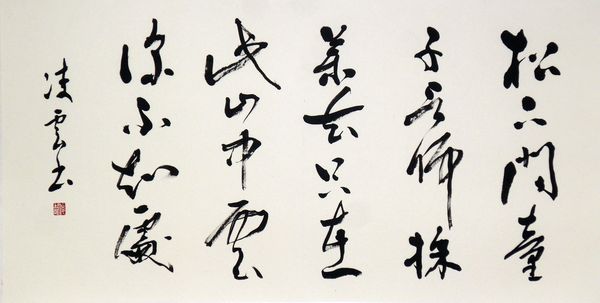 松下問童
子言師採
藥去只在
此山中雲
深不知處
凌雲書